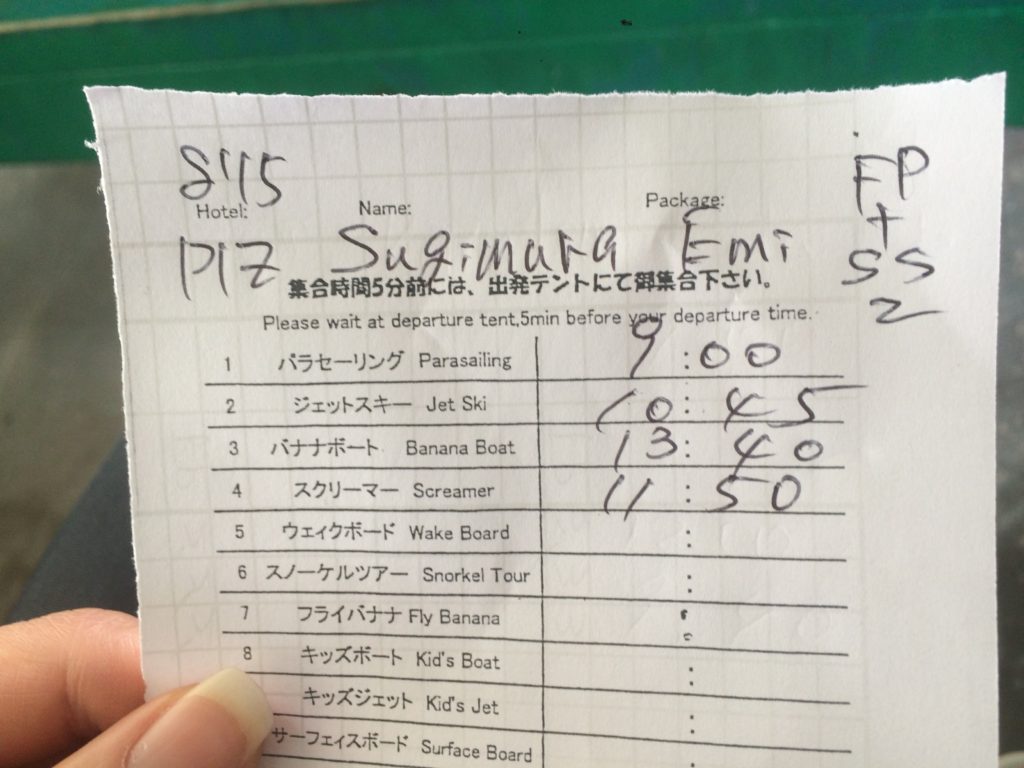 8:15
FP
+
SS
2
Hotel: Name: Package:
PIZ Sugimura Emi
集合時間5分前には、出発テントにて御集合下さい。
Please wait at departure tent,5min before your departure time.
1 パラセーリング Parasailing 9:00
2 ジェットスキー Jet Ski 10:45
3 バナナボート Banana Boat 13:40
4 スクリーマー Screamer 11:50
5 ウェイクボード Wake Board :
6 スノーケルツアー Snorkel Tour :
7 フライバナナ Fly Banana :
8 キッズボート Kid's Boat :
キッズジェット Kid's Jet :
サーフェィスボード Surface Board :